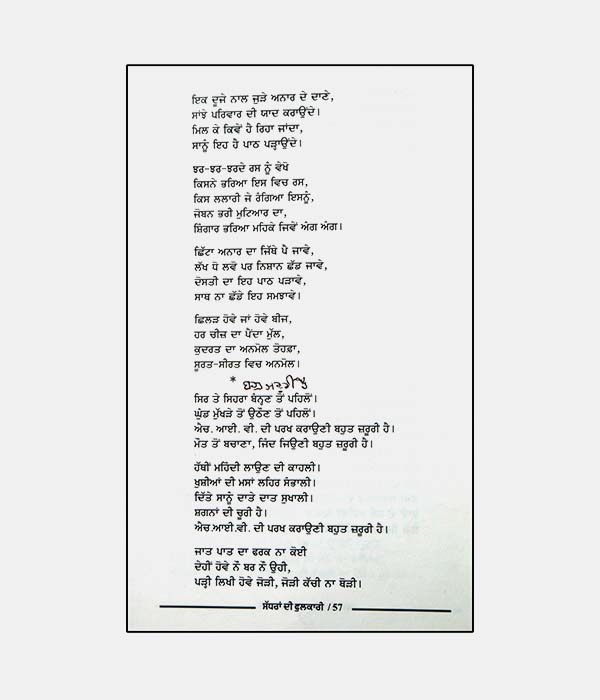 ਇਕ ਦੂਜੇ ਨਾਲ ਜੁੜੇ ਅਨਾਰ ਦੇ ਦਾਣੇ,
ਸਾਂਝੇ ਪਰਿਵਾਰ ਦੀ ਯਾਦ ਕਰਾਉਂਦੇ।
ਮਿਲ ਕੇ ਕਿਵੇਂ ਹੈ ਰਿਹਾ ਜਾਂਦਾ,
ਸਾਨੂੰ ਇਹ ਹੈ ਪਾਠ ਪੜ੍ਹਾਉਂਦੇ।
ਝਰ-ਝਰ-ਝਰਦੇ ਰਸ ਨੂੰ ਵੇਖੋ
ਕਿਸਨੇ ਭਰਿਆ ਇਸ ਵਿਚ ਰਸ,
ਕਿਸ ਲਲਾਰੀ ਜੇ ਰੰਗਿਆ ਇਸਨੂੰ,
ਜੋਬਨ ਭਰੀ ਮੁਟਿਆਰ ਦਾ,
ਸ਼ਿੰਗਾਰ ਭਰਿਆ ਮਹਿਕੇ ਜਿਵੇਂ ਅੰਗ ਅੰਗ।
ਛਿੱਟਾ ਅਨਾਰ ਦਾ ਜਿੱਥੇ ਪੈ ਜਾਵੇ,
ਲੱਖ ਧੋ ਲਵੋ ਪਰ ਨਿਸ਼ਾਨ ਛੱਡ ਜਾਵੇ,
ਦੋਸਤੀ ਦਾ ਇਹ ਪਾਠ ਪੜਾਵੇ,
ਸਾਥ ਨਾ ਛੱਡੇ ਇਹ ਸਮਝਾਵੇ।
ਛਿਲੜ ਹੋਵੇ ਜਾਂ ਹੋਵੇ ਬੀਜ,
ਹਰ ਚੀਜ਼ ਦਾ ਪੈਂਦਾ ਮੁੱਲ,
ਕੁਦਰਤ ਦਾ ਅਨਮੋਲ ਤੋਹਫ਼ਾ,
ਸੂਰਤ-ਸੀਰਤ ਵਿਚ ਅਨਮੋਲ।
*
ਸਿਰ ਤੇ ਸਿਹਰਾ ਬੰਨ੍ਹਣ ਤੋਂ ਪਹਿਲੋਂ।
ਘੁੰਡ ਮੁੱਖੜੇ ਤੋਂ ਉਠੌਣ ਤੋਂ ਪਹਿਲੋਂ।
ਐਚ. ਆਈ. ਵੀ. ਦੀ ਪਰਖ ਕਰਾਉਣੀ ਬਹੁਤ ਜ਼ਰੂਰੀ ਹੈ।
ਮੌਤ ਤੋਂ ਬਚਾਣਾ, ਜਿੰਦ ਜਿਉਣੀ ਬਹੁਤ ਜ਼ਰੂਰੀ ਹੈ।
ਹੱਥੀਂ ਮਹਿੰਦੀ ਲਾਉਣ ਦੀ ਕਾਹਲੀ।
ਖੁਸ਼ੀਆਂ ਦੀ ਮਸਾਂ ਲਹਿਰ ਸੰਭਾਲੀ।
ਦਿੱਤੇ ਸਾਨੂੰ ਦਾਤੇ ਦਾਤ ਸੁਖਾਲੀ।
ਸ਼ਗਨਾਂ ਦੀ ਚੂਰੀ ਹੈ।
ਐਚ.ਆਈ.ਵੀ. ਦੀ ਪਰਖ ਕਰਾਉਣੀ ਬਹੁਤ ਜ਼ਰੂਰੀ ਹੈ।
ਜਾਤ ਪਾਤ ਦਾ ਫਰਕ ਨਾ ਕੋਈ
ਦੇਹੀਂ ਹੋਵੇ ਨੌਂ ਬਰ ਨੌਂ ਉਹੀ,
ਪੜ੍ਹੀ ਲਿਖੀ ਹੋਵੇ ਜੋੜੀ, ਜੋੜੀ ਕੱਚੀ ਨਾ ਥੋੜੀ।
ਸੱਧਰਾਂ ਦੀ ਫੁਲਕਾਰੀ / 57